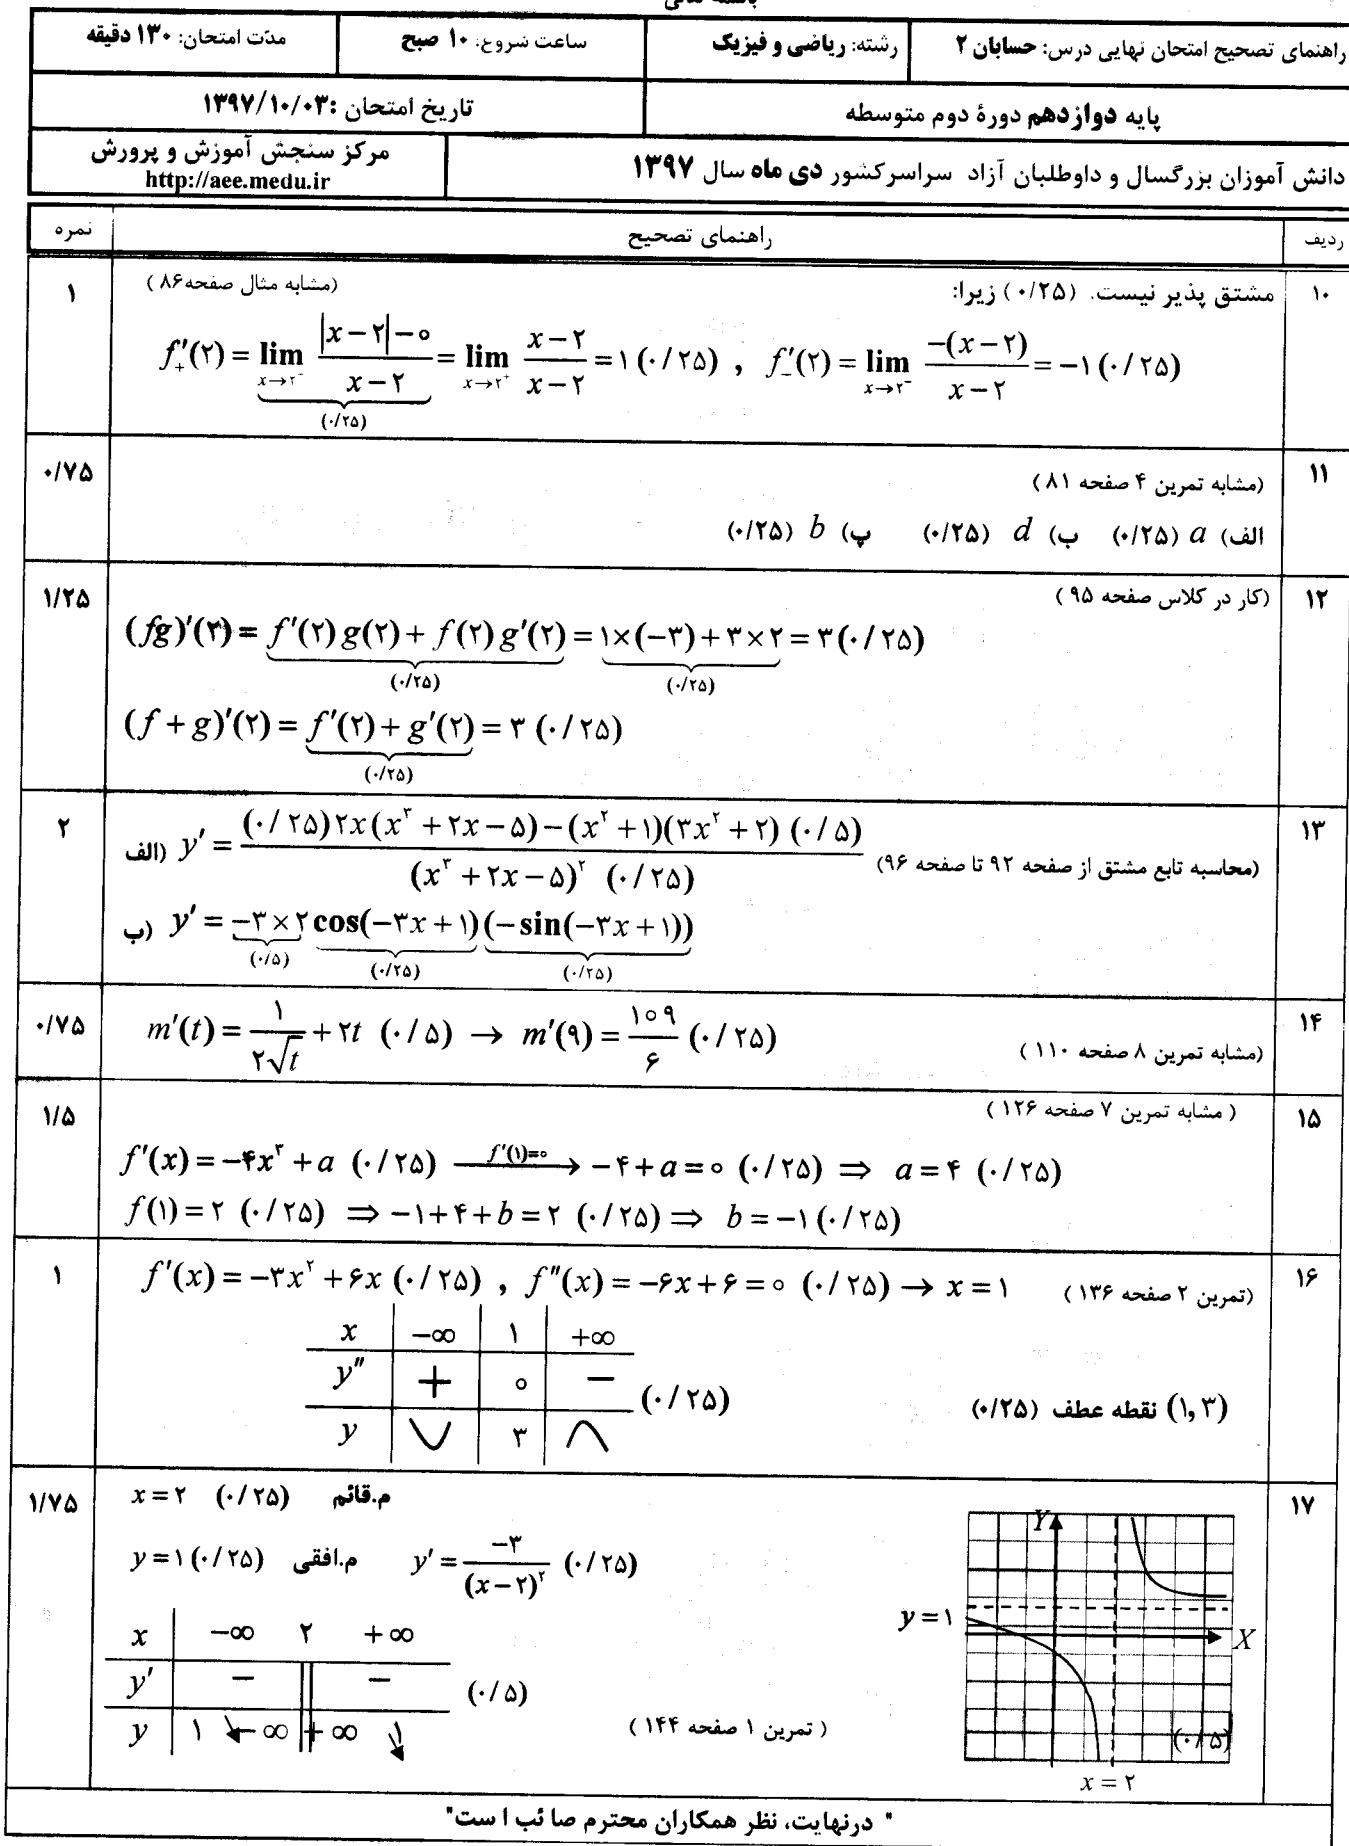 راهنمای تصحیح امتحان نهایی درس: حسابان ۲ رشته: ریاضی و فیزیک ساعت شروع: ۱۰ صبح مدّت امتحان: ۱۳۰ دقیقه
پایه دوازدهم دورهٔ دوم متوسطه تاریخ امتحان :۱۳۹۷/۱۰/۰۳
دانش آموزان بزرگسال و داوطلبان آزاد سراسرکشور دی ماه سال ۱۳۹۷ مرکز سنجش آموزش و پرورش
http://aee.medu.ir
ردیف راهنمای تصحیح نمره
۱۰ مشتق پذیر نیست. (۰/۲۵) زیرا: (مشابه مثال صفحه۸۶) ۱
f′₊(۲) = lim x→۲⁻ (|x−۲|−۰)/(x−۲) = lim x→۲⁺ (x−۲)/(x−۲) = ۱ (۰/۲۵) , f′₋(۲) = lim x→۲⁻ (−(x−۲))/(x−۲) = −۱ (۰/۲۵)
(۰/۲۵)
۱۱ (مشابه تمرین ۴ صفحه ۸۱) ۰/۷۵
الف) a (۰/۲۵) ب) d (۰/۲۵) پ) b (۰/۲۵)
۱۲ (کار در کلاس صفحه ۹۵) ۱/۲۵
(fg)′(۳) = f′(۲)g(۲) + f(۲)g′(۲) = ۱×(−۳)+۳×۲ = ۳ (۰/۲۵)
(۰/۲۵) (۰/۲۵)
(f+g)′(۲) = f′(۲)+g′(۲) = ۳ (۰/۲۵)
(۰/۲۵)
۱۳ (محاسبه تابع مشتق از صفحه ۹۲ تا صفحه ۹۶) ۲
الف) y′ = ((۰/۲۵)۲x(x³+۲x−۵)−(x²+۱)(۳x²+۲) (۰/۵))/((x³+۲x−۵)² (۰/۲۵))
ب) y′ = −۳×۲ cos(−۳x+۱)(−sin(−۳x+۱))
(۰/۵) (۰/۲۵) (۰/۲۵)
۱۴ (مشابه تمرین ۸ صفحه ۱۱۰) ۰/۷۵
m′(t) = ۱/(۲√t) + ۲t (۰/۵) → m′(۹) = ۱۰۹/۶ (۰/۲۵)
۱۵ (مشابه تمرین ۷ صفحه ۱۲۶) ۱/۵
f′(x) = −۴x³+a (۰/۲۵) f′(۱)=۰ → −۴+a=۰ (۰/۲۵) ⇒ a=۴ (۰/۲۵)
f(۱)=۲ (۰/۲۵) ⇒ −۱+۴+b=۲ (۰/۲۵) ⇒ b=−۱ (۰/۲۵)
۱۶ (تمرین ۲ صفحه ۱۳۶) ۱
f′(x) = −۳x²+۶x (۰/۲۵) , f″(x) = −۶x+۶=۰ (۰/۲۵) → x=۱
x −∞ ۱ +∞
y″ + ۰ − (۰/۲۵)
y ۳
(۱,۳) نقطه عطف (۰/۲۵)
۱۷ ۱/۷۵
x=۲ (۰/۲۵) م.قائم
y=۱ (۰/۲۵) م.افقی y′ = −۳/(x−۲)² (۰/۲۵)
x −∞ ۲ +∞
y′ − − (۰/۵)
y ۱ −∞ +∞ ۱
(تمرین ۱ صفحه ۱۴۴)
Y
y=۱
X
(۰/۵)
x = ۲
" درنهایت، نظر همکاران محترم صائب است"